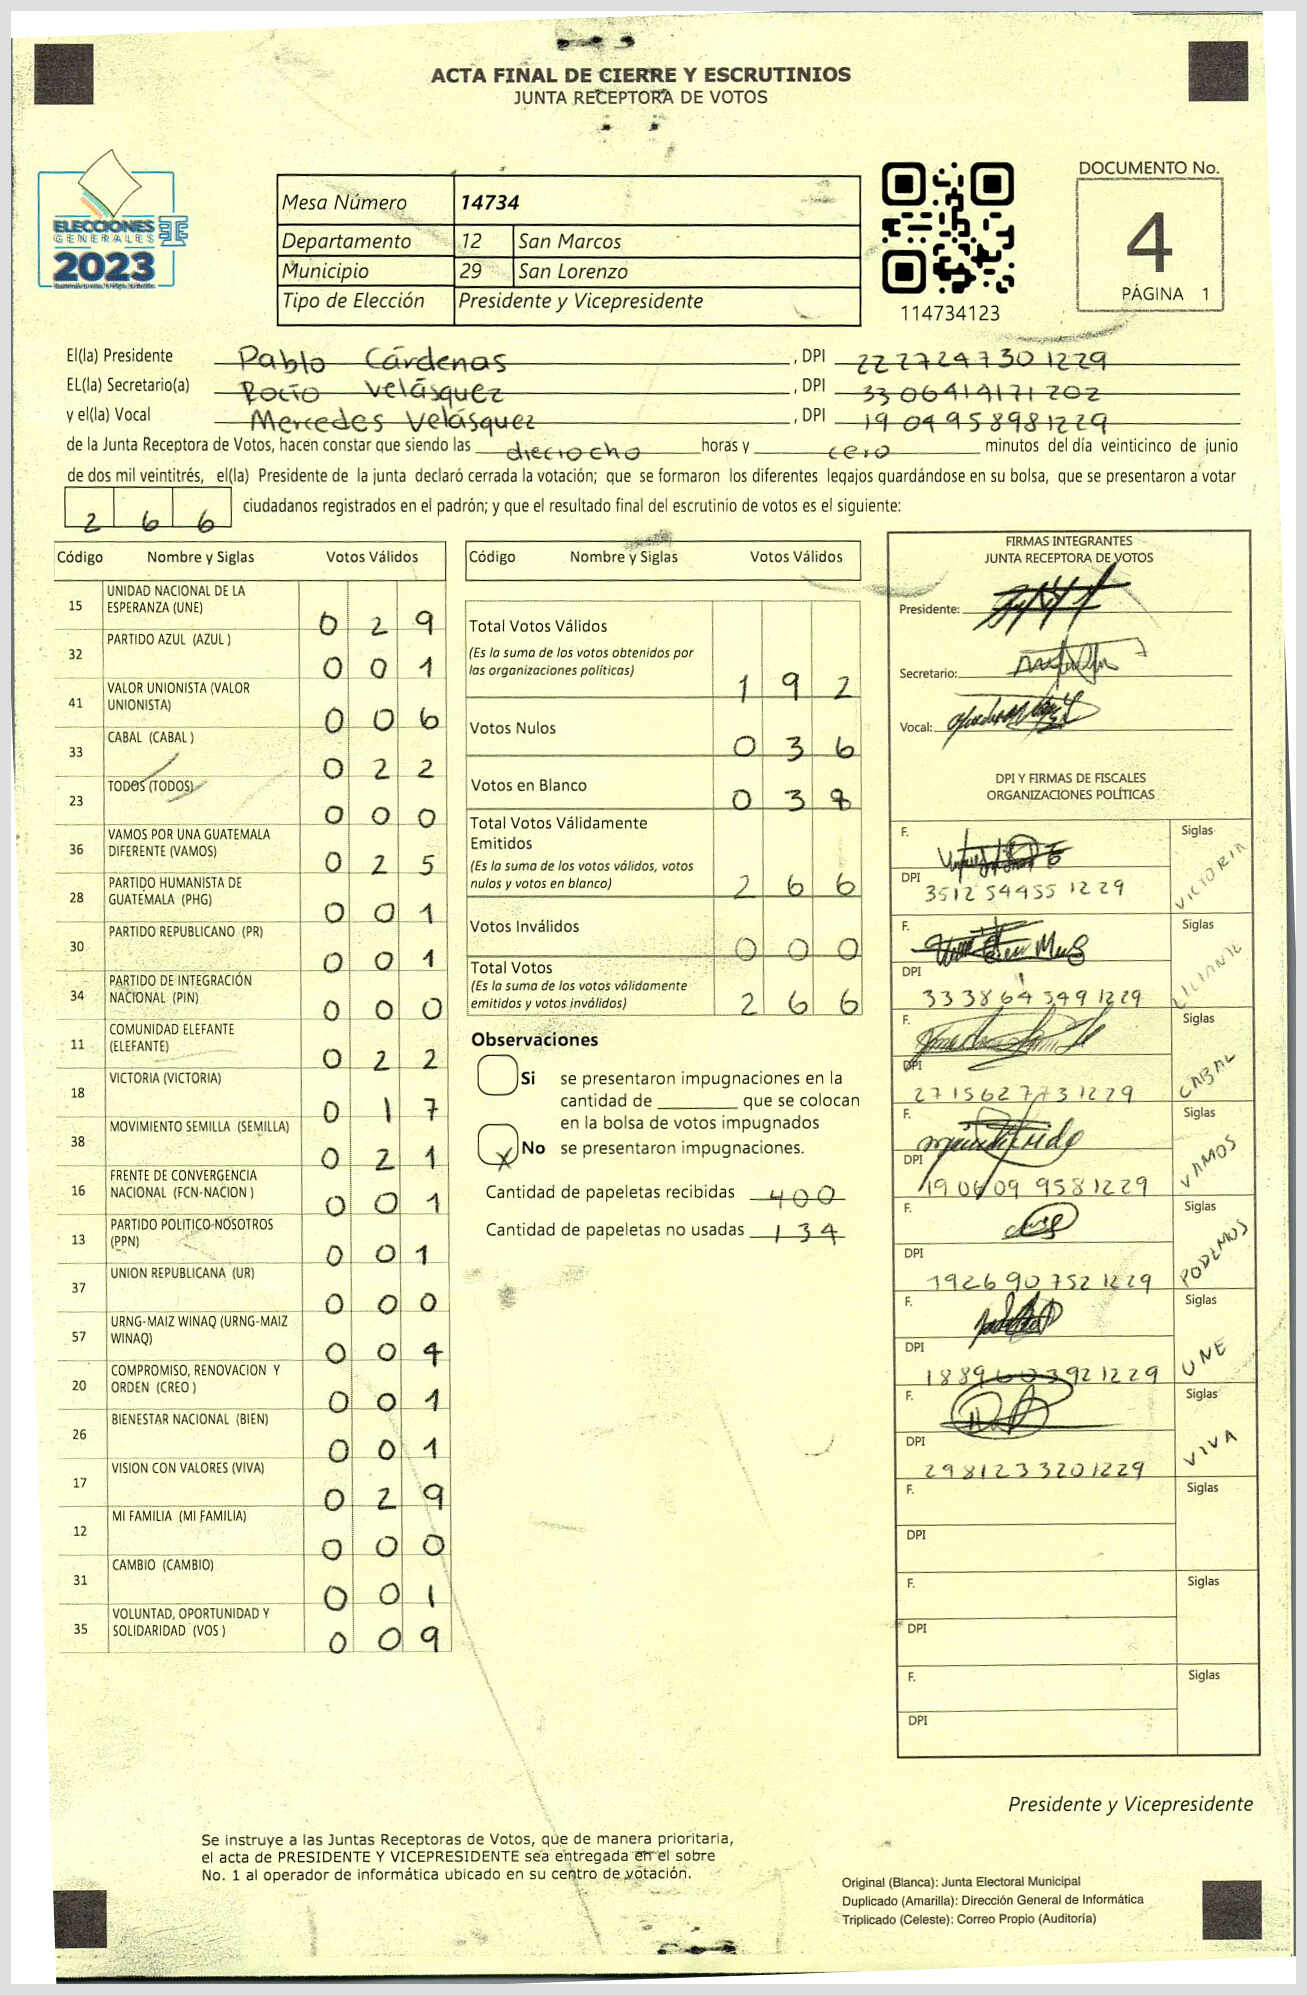 ACTA FINAL DE CIERRE Y ESCRUTINIOS
JUNTA RECEPTORA DE VOTOS
ELECCIONES
GENERALES
2023
Mesa Número 14734
Departamento 12 San Marcos
Municipio 29 San Lorenzo
Tipo de Elección Presidente y Vicepresidente
114734123
DOCUMENTO No.
4
PÁGINA 1
El(la) Presidente Pablo Cárdenas , DPI 2227247301229
EL(la) Secretario(a) Rocío Velásquez , DPI 3306414171202
y el(la) Vocal Mercedes Velásquez , DPI 1904958981229
de la Junta Receptora de Votos, hacen constar que siendo las dieciocho horas y cero minutos del día veinticinco de junio
de dos mil veintitrés, el(la) Presidente de la junta declaró cerrada la votación; que se formaron los diferentes legajos guardándose en su bolsa, que se presentaron a votar
2 6 6 ciudadanos registrados en el padrón; y que el resultado final del escrutinio de votos es el siguiente:
Código Nombre y Siglas Votos Válidos
15 UNIDAD NACIONAL DE LA
ESPERANZA (UNE) 0 2 9
32 PARTIDO AZUL (AZUL ) 0 0 1
41 VALOR UNIONISTA (VALOR
UNIONISTA) 0 0 6
33 CABAL (CABAL ) 0 2 2
23 TODOS (TODOS) 0 0 0
36 VAMOS POR UNA GUATEMALA
DIFERENTE (VAMOS) 0 2 5
28 PARTIDO HUMANISTA DE
GUATEMALA (PHG) 0 0 1
30 PARTIDO REPUBLICANO (PR) 0 0 1
34 PARTIDO DE INTEGRACIÓN
NACIONAL (PIN) 0 0 0
11 COMUNIDAD ELEFANTE
(ELEFANTE) 0 2 2
18 VICTORIA (VICTORIA) 0 1 7
38 MOVIMIENTO SEMILLA (SEMILLA) 0 2 1
16 FRENTE DE CONVERGENCIA
NACIONAL (FCN-NACION ) 0 0 1
13 PARTIDO POLITICO NOSOTROS
(PPN) 0 0 1
37 UNION REPUBLICANA (UR) 0 0 0
57 URNG-MAIZ WINAQ (URNG-MAIZ
WINAQ) 0 0 4
20 COMPROMISO, RENOVACION Y
ORDEN (CREO ) 0 0 1
26 BIENESTAR NACIONAL (BIEN) 0 0 1
17 VISION CON VALORES (VIVA) 0 2 9
12 MI FAMILIA (MI FAMILIA) 0 0 0
31 CAMBIO (CAMBIO) 0 0 1
35 VOLUNTAD, OPORTUNIDAD Y
SOLIDARIDAD (VOS ) 0 0 9
Código Nombre y Siglas Votos Válidos
Total Votos Válidos
(Es la suma de los votos obtenidos por
las organizaciones políticas) 1 9 2
Votos Nulos 0 3 6
Votos en Blanco 0 3 8
Total Votos Válidamente
Emitidos
(Es la suma de los votos válidos, votos
nulos y votos en blanco) 2 6 6
Votos Inválidos 0 0 0
Total Votos
(Es la suma de los votos válidamente
emitidos y votos inválidos) 2 6 6
Observaciones
Si se presentaron impugnaciones en la
cantidad de ________ que se colocan
en la bolsa de votos impugnados
X No se presentaron impugnaciones.
Cantidad de papeletas recibidas 400
Cantidad de papeletas no usadas 134
FIRMAS INTEGRANTES
JUNTA RECEPTORA DE VOTOS
Presidente:
Secretario:
Vocal:
DPI Y FIRMAS DE FISCALES
ORGANIZACIONES POLÍTICAS
F. Siglas
DPI 3512544551229 VICTORIA
F. Siglas
DPI 3338645491229
F. Siglas
DPI 2715627731229 CABAL
F. Siglas
DPI 1906099581229 VAMOS
F. Siglas
DPI 1926907521229 PODEMOS
F. Siglas
DPI 1889603921229 UNE
F. Siglas
DPI 2981233201229 VIVA
F. Siglas
DPI
F. Siglas
DPI
F. Siglas
DPI
Presidente y Vicepresidente
Se instruye a las Juntas Receptoras de Votos, que de manera prioritaria,
el acta de PRESIDENTE Y VICEPRESIDENTE sea entregada en el sobre
No. 1 al operador de informática ubicado en su centro de votación.
Original (Blanca): Junta Electoral Municipal
Duplicado (Amarilla): Dirección General de Informática
Triplicado (Celeste): Correo Propio (Auditoría)